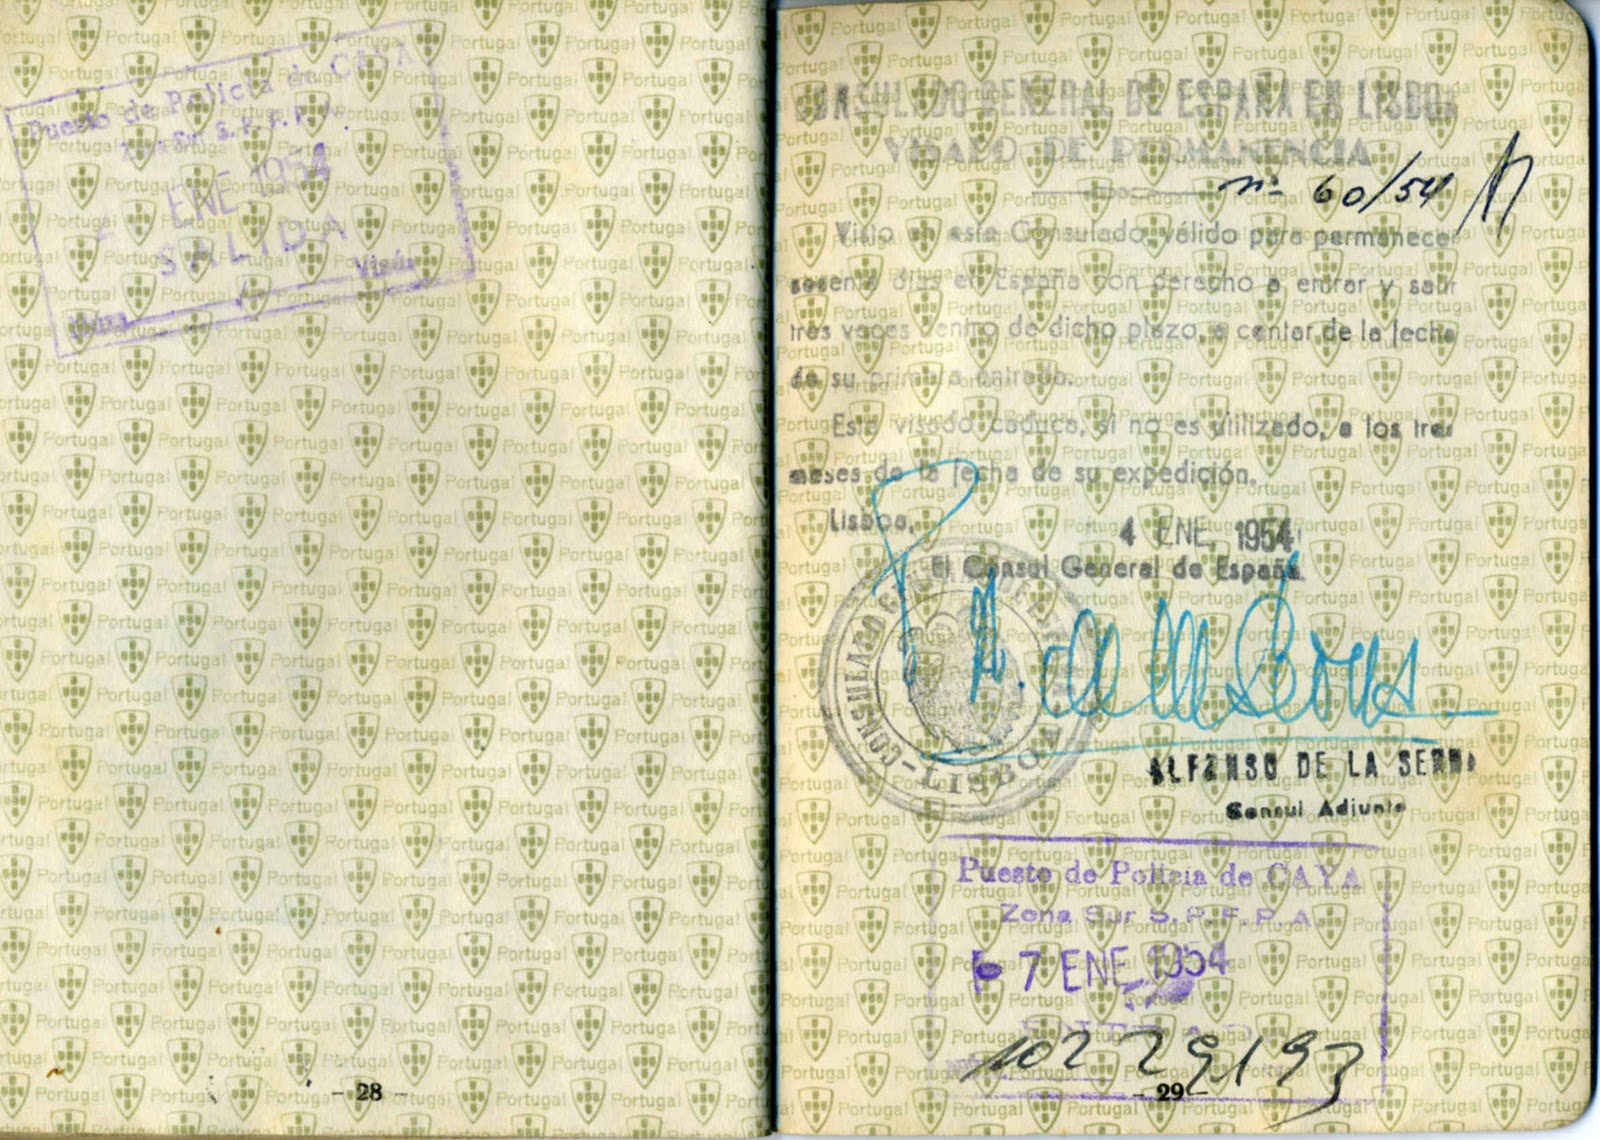 Puesto de Policia de CAYA
Zona Sur S. P. F. P. A.
ENE 1954
SALIDA
Visto
- 28 -
CONSULADO GENERAL DE ESPAÑA EN LISBOA
VISADO DE PERMANENCIA
nº 60/54
Visto en este Consulado, válido para permanecer
sesenta días en España con derecho a entrar y salir
tres veces dentro de dicho plazo, a contar de la fecha
de su primera entrada.
Este visado caduca, si no es utilizado, a los tres
meses de la fecha de su expedición.
Lisboa, 4 ENE 1954
El Consul General de España
CONSULADO GENERAL DE ESPAÑA
-LISBOA-
ALFONSO DE LA SERNA
Consul Adjunto
Puesto de Policia de CAYA
Zona Sur S. P. F. P. A.
7 ENE 1954
ENTRADA
- 29 -
Portugal